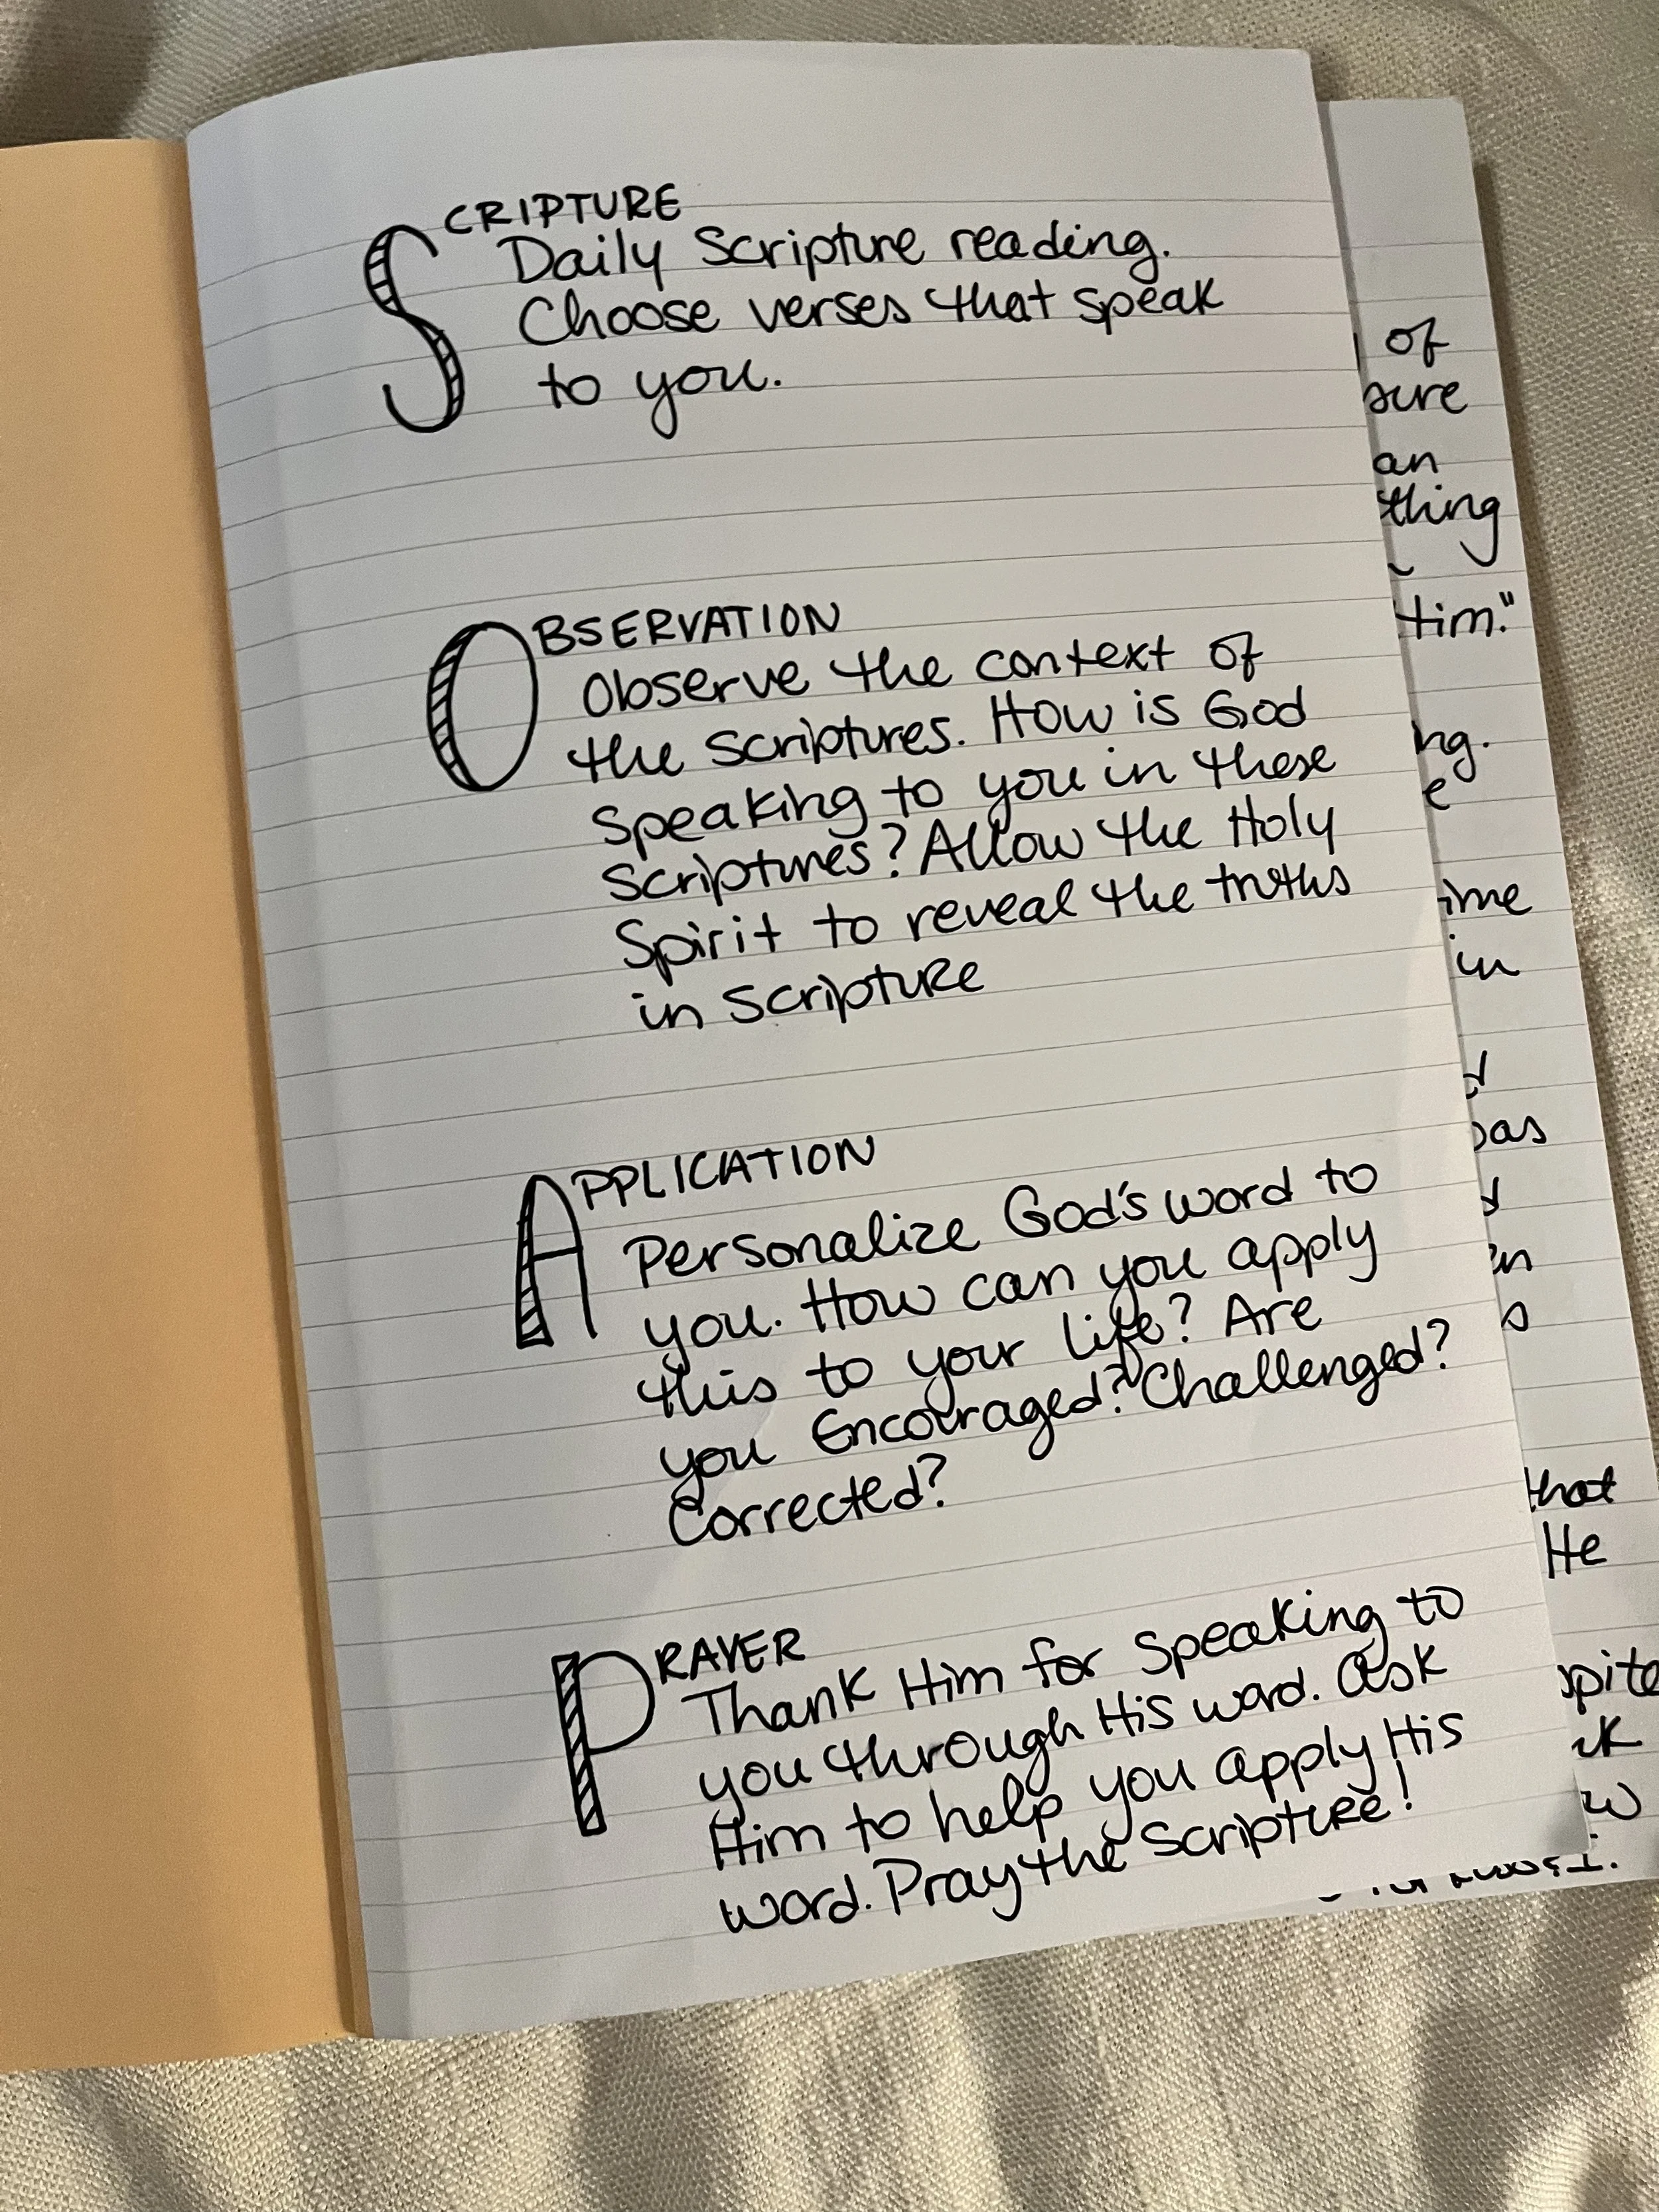 SCRIPTURE
Daily Scripture reading.
Choose verses that speak
to you.
OBSERVATION
Observe the context of
the scriptures. How is God
speaking to you in these
scriptures? Allow the Holy
Spirit to reveal the truths
in scripture
APPLICATION
Personalize God's word to
you. How can you apply
this to your life? Are
you Encouraged? Challenged?
Corrected?
PRAYER
Thank Him for speaking to
you through His word. Ask
Him to help you apply His
word. Pray the scripture!
of
an
thing
Him."
in
that
He